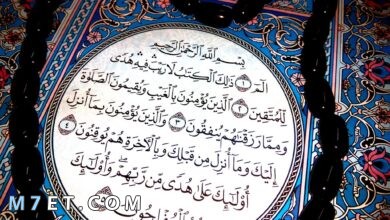 بِسْمِ ٱللَّهِ ٱلرَّحْمَٰنِ ٱلرَّحِيمِ
الٓمٓ ١ ذَٰلِكَ ٱلْكِتَٰبُ لَا رَيْبَ فِيهِ هُدًى
لِّلْمُتَّقِينَ ٢ ٱلَّذِينَ يُؤْمِنُونَ بِٱلْغَيْبِ وَيُقِيمُونَ ٱلصَّلَوٰةَ
وَمِمَّا رَزَقْنَٰهُمْ يُنفِقُونَ ٣ وَٱلَّذِينَ يُؤْمِنُونَ بِمَآ أُنزِلَ
إِلَيْكَ وَمَآ أُنزِلَ مِن قَبْلِكَ وَبِٱلْءَاخِرَةِ هُمْ يُوقِنُونَ ٤
أُو۟لَٰٓئِكَ عَلَىٰ هُدًى مِّن رَّبِّهِمْ وَأُو۟لَٰٓئِكَ
M7ET.COM